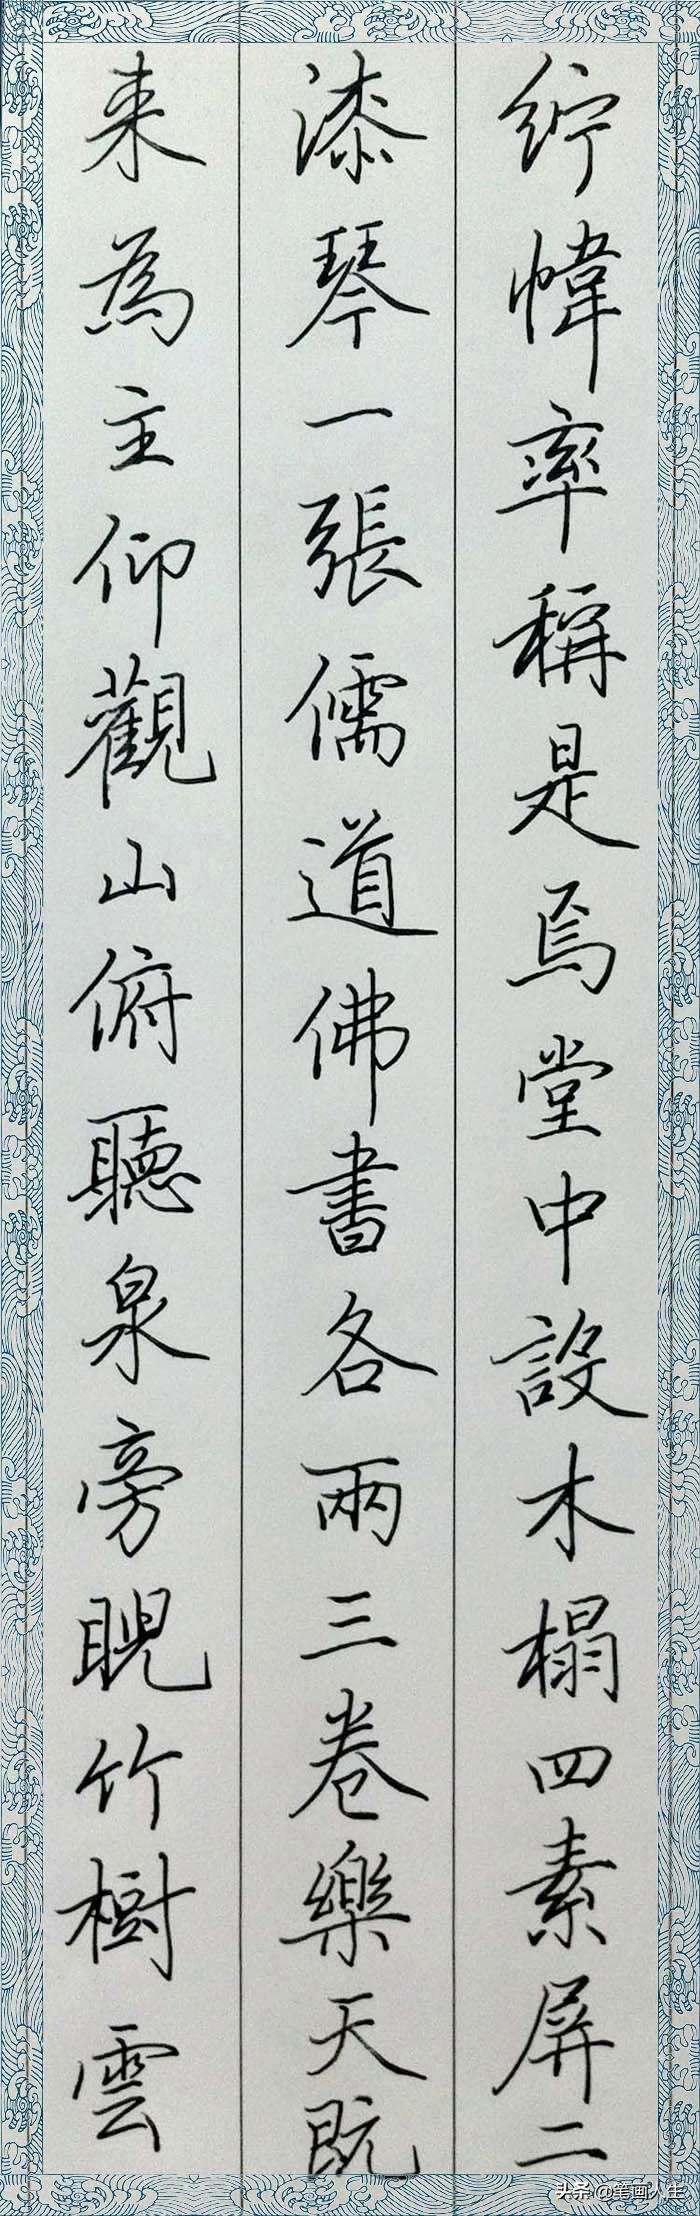 紵幃率稱是焉堂中設木榻四素屏二
漆琴一張儒道佛書各兩三卷樂天既
来為主仰觀山俯聽泉旁睨竹樹雲
头条 @笔画人生